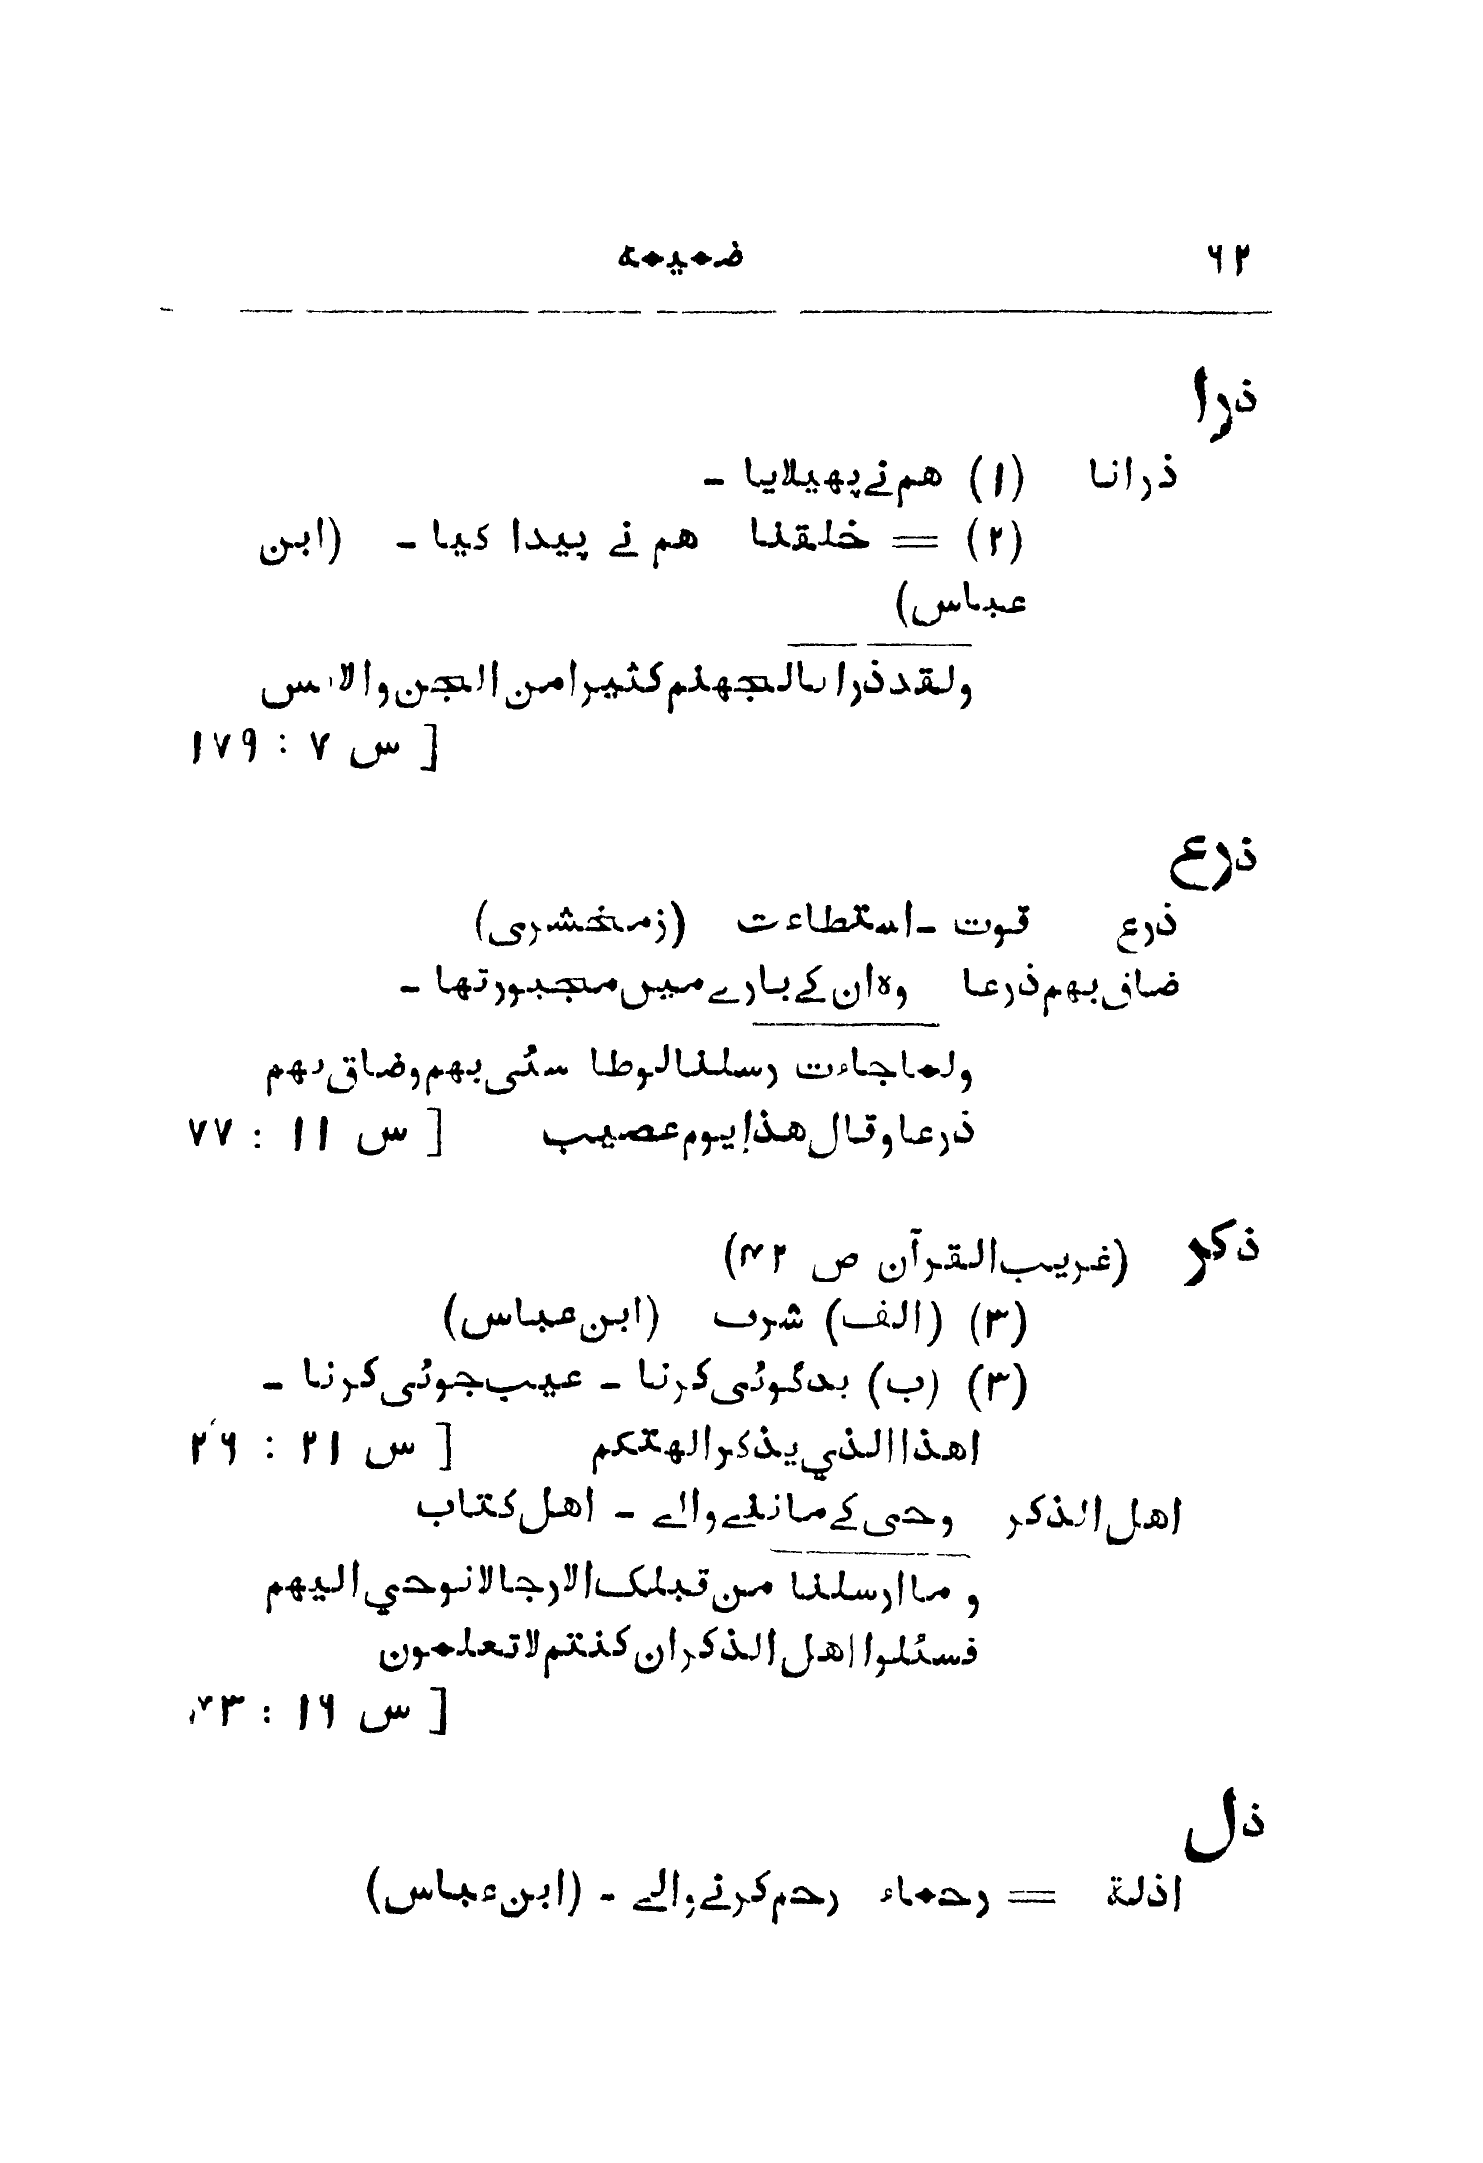 ۶۲ ضمیمہ
ذرا
ذرانا (۱) ھم نے پھیلایا -
(۲) = خلقنا ھم نے پیدا کیا - (ابن
عباس)
ولقد ذرانا لجھنم کثیرا من الجن والانس
[ س ۷ : ۱۷۹
ذرع
ذرع قوت - استطاعت (زمخشری)
ضاق بھم ذرعا وہ ان کے بارے میں مجبور تھا -
ولما جاءت رسلنا لوطا سئی بھم وضاق بھم
ذرعا وقال ھذا یوم عصیب [ س ۱۱ : ۷۷
ذکر (غریب القرآن ص ۴۲)
(۳) (الف) شرف (ابن عباس)
(۳) (ب) بدگوئی کرنا - عیب جوئی کرنا -
اھذا الذي یذکر الھتکم [ س ۲۱ : ۲۶
اھل الذکر وحی کے ماننے والے - اھل کتاب
و ما ارسلنا من قبلک الا رجالا نوحي الیھم
فسئلوا اھل الذکر ان کنتم لا تعلمون
[ س ۱۶ : ۴۳
ذل
اذلۃ = رحماء رحم کرنے والے - (ابن عباس)